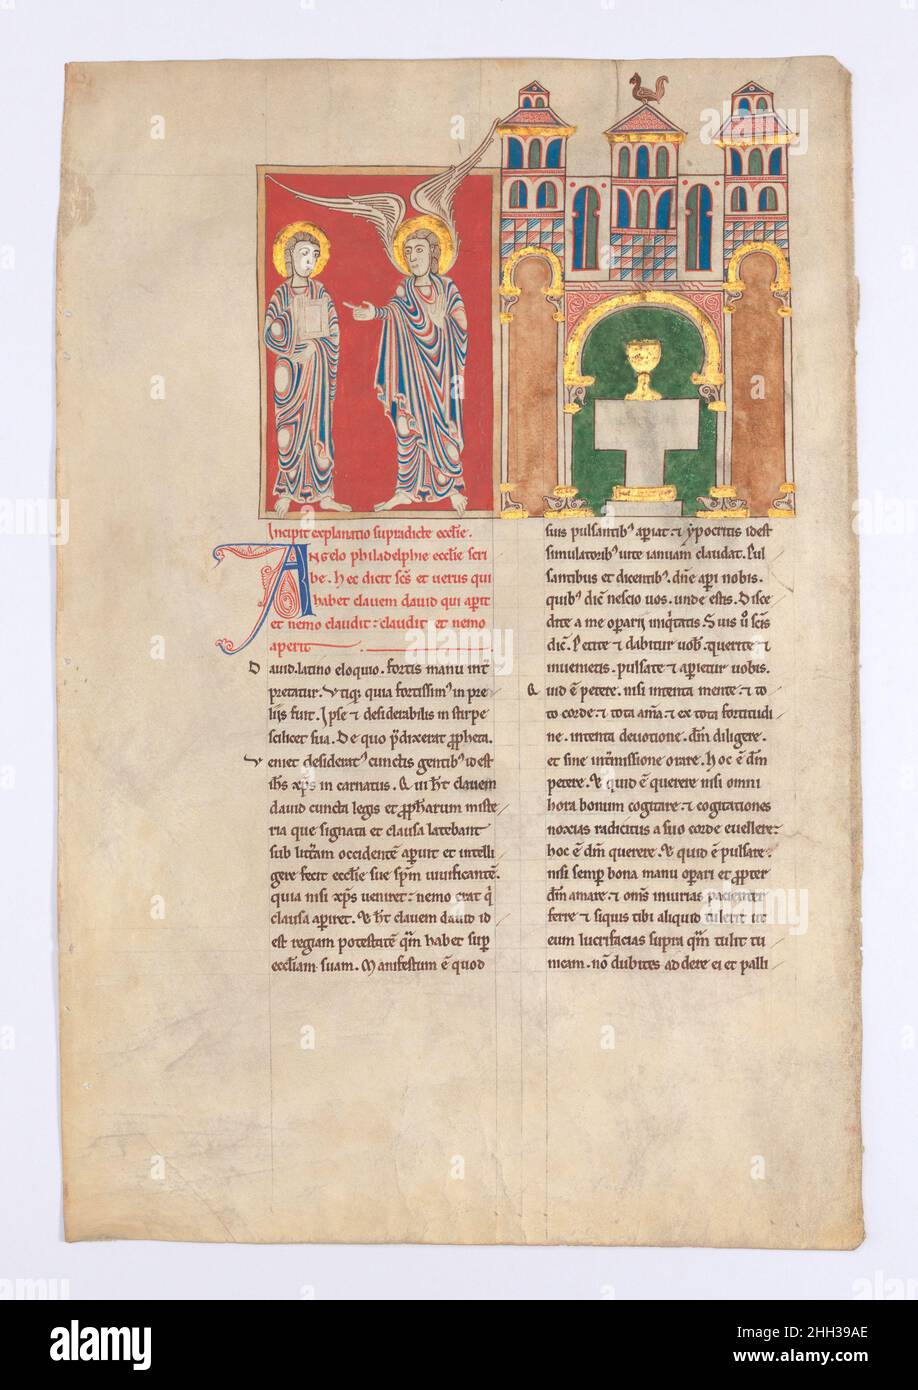 Incipit explanatio supradicte eccl̄ie.
ANgelo philadelphie eccl̄ie scri
be. hec dicit sc̄s et verus qui
habet clavem david qui aperit
et nemo claudit: claudit et nemo
aperit
David. latino eloquio. fortis manu int̄
pretatur. Vtiq; quia fortissim᾽ in pre
liis fuit. Ipse ⁊ desiderabilis in stirpe
scilicet sua. De quo p̄dixerat ꝓpheta.
Veniet desiderat᾽ cunctis gentib᾽ id est
ih̄s xp̄s in carnatus. Qui h̄t clavem
david cuncta legis et ꝓph̄arum miste
ria que signata et clausa latebant
sub litt̄am occidentē aperuit et intelli
gere fecit eccl̄ie sue sp̄m vivificantē.
quia nisi xp̄s veniret: nemo erat q̄
clausa aperiret. Et h̄t clavem david id
est regiam potestatē qm̄ habet suꝑ
eccl̄iam suam. Manifestum ē quod
suis pulsantib᾽ aperiat ⁊ ypocritis id est
simulatorib᾽ vite ianuam claudat. Pul
santibus et dicentib᾽. dn̄e aperi nobis.
quib᾽ dic̄ nescio vos. unde estis. Disce
dite a me operarii iniq̄tatis. Suis ū sc̄is
dic̄. Petite ⁊ dabitur vob̄. querite ⁊
invenietis. pulsate ⁊ aperietur vobis.
Quid ē petere. nisi intenta mente ⁊ to
to corde ⁊ tota anīa ⁊ ex tota fortitudi
ne. intenta devotione. dm̄ diligere.
et sine int̄missione orare. Hoc ē dm̄
petere. Et quid ē querere nisi omni
hora bonum cogitare ⁊ cogitationes
noxias radicitus a suo corde evellere:
hoc ē dm̄ querere. Et quid ē pulsare.
nisi semꝑ bona manu operari et ꝓpter
dm̄ amare ⁊ om̄s iniurias pacienter
ferre ⁊ siquis tibi aliquid tulerit ut
eum lucrifacias supra qm̄ tulit tu
nicam. nō dubites addere ei et palli
alamy
Image ID: 2HH39AE
www.alamy.com